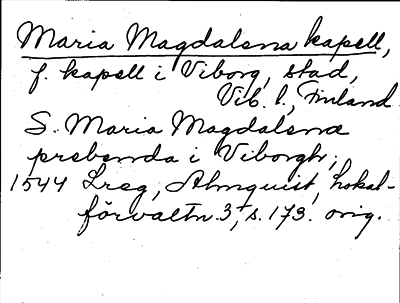 Maria Magdalena kapell,
f. kapell i Viborg, stad,
Vib. l., Finland.
S. Maria Magdalenæ
prebenda i Viborgh;
1544 Lreg, Almquist, Lokal-
förvaltn. 3, s. 173. orig.